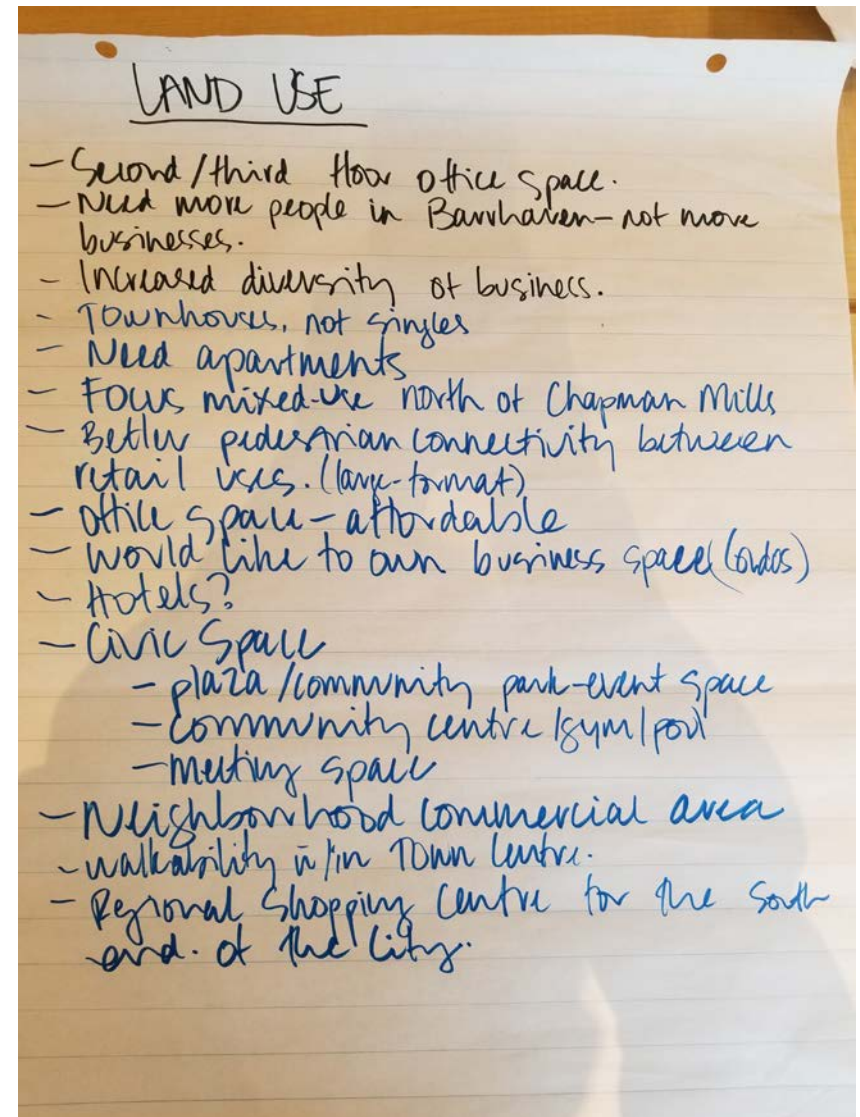 LAND USE
- Second/third floor office space.
- Need more people in Barrhaven - not more
businesses.
- Increased diversity of business.
- Townhouses, not singles
- Need apartments
- Focus mixed-use north of Chapman Mills
- Better pedestrian connectivity between
retail uses. (large-format)
- office space - affordable
- Would like to own business space (condos)
- Hotels?
- Civic Space
- plaza/community park-event space
- Community centre/gym/pool
- meeting space
- Neighbourhood commercial area
- walkability w/in Town Centre.
- Regional Shopping Centre for the South
end. of the City.